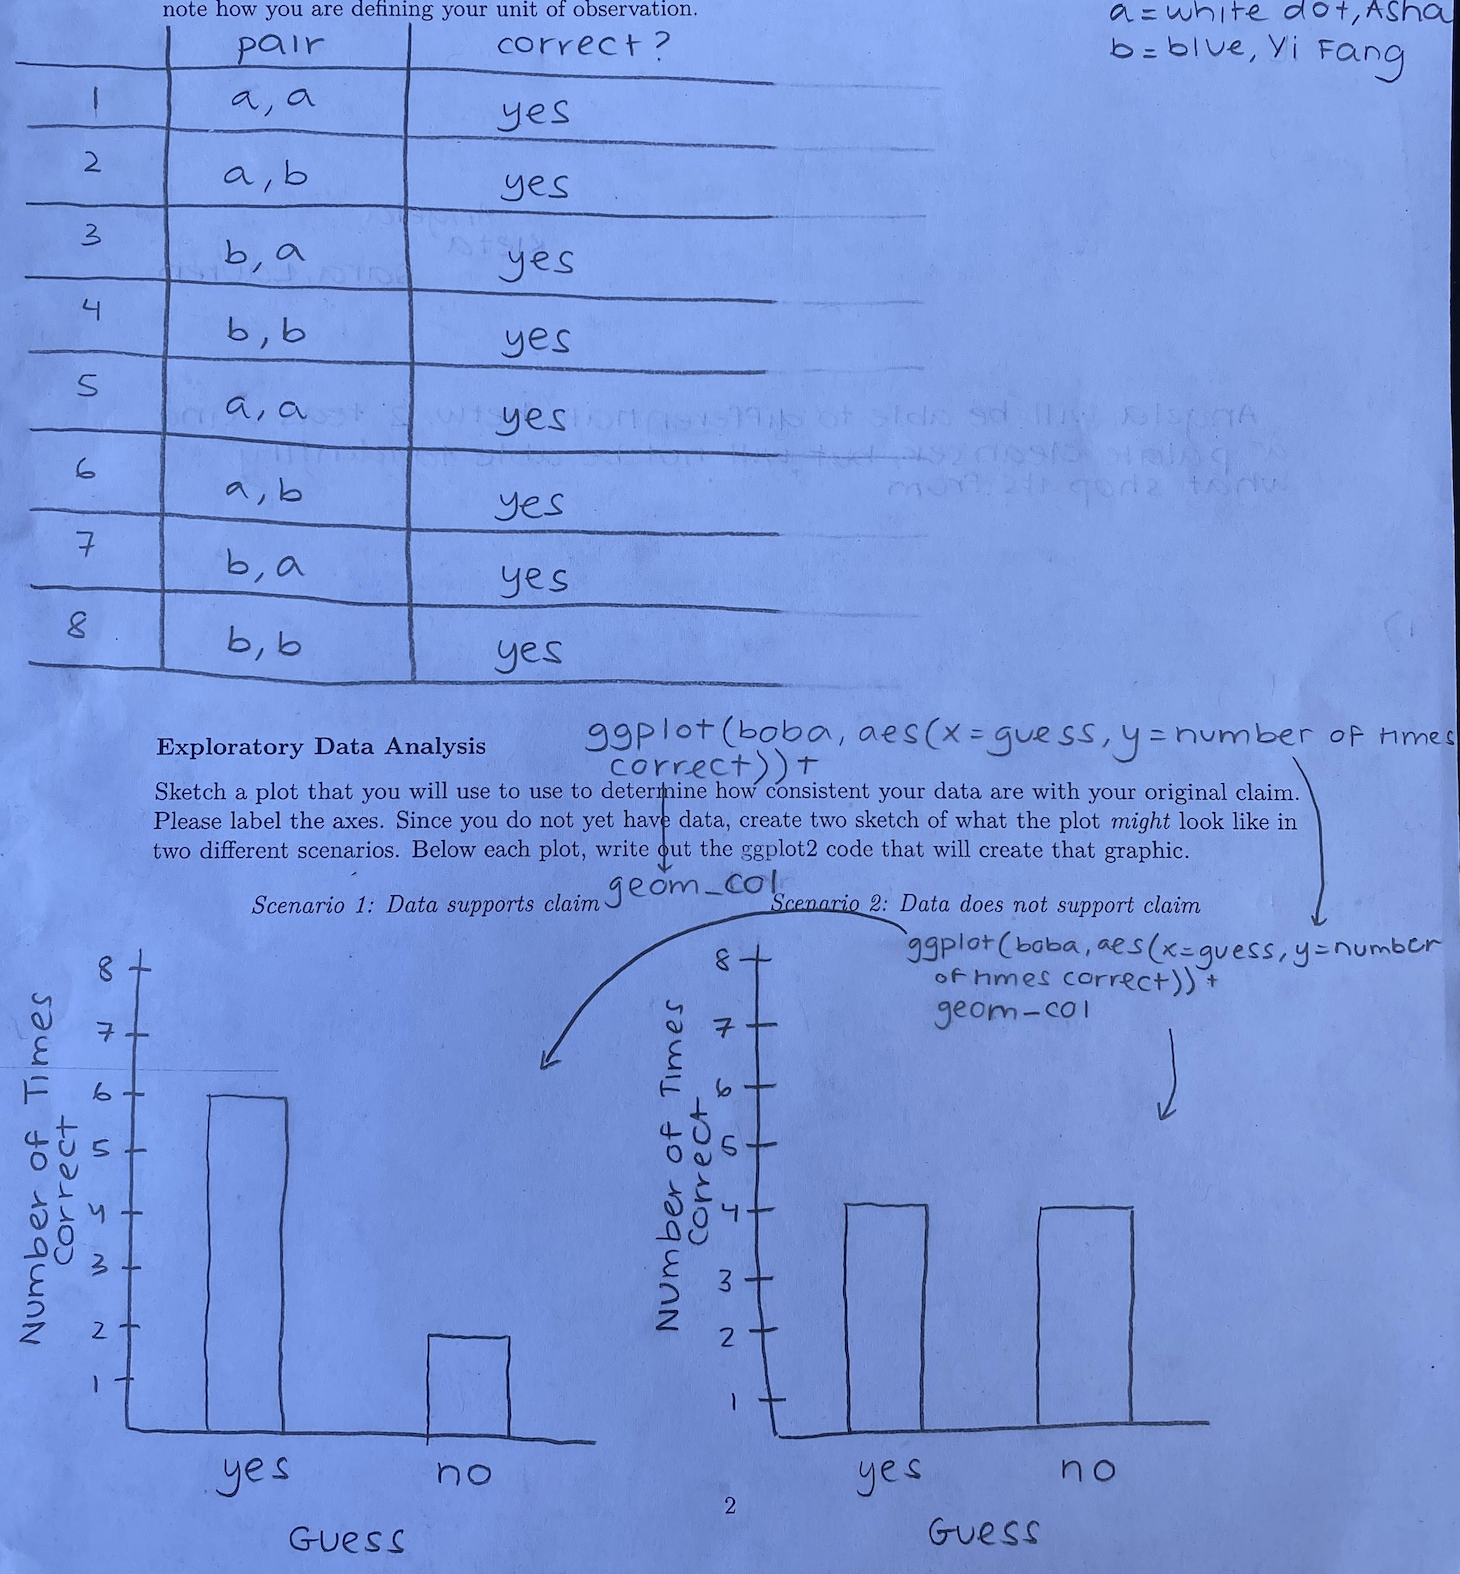 note how you are defining your unit of observation.
a = white dot, Asha
b = blue, Yi Fang
pair correct?
1 a, a yes
2 a, b yes
3 b, a yes
4 b, b yes
5 a, a yes
6 a, b yes
7 b, a yes
8 b, b yes
ggplot(boba, aes(x=guess, y=number of times
correct))+
geom_col
Exploratory Data Analysis
Sketch a plot that you will use to use to determine how consistent your data are with your original claim.
Please label the axes. Since you do not yet have data, create two sketch of what the plot might look like in
two different scenarios. Below each plot, write out the ggplot2 code that will create that graphic.
Scenario 1: Data supports claim
Scenario 2: Data does not support claim
ggplot(boba, aes(x=guess, y=number
of times correct)) +
geom-col
Number of Times
Correct
8
7
6
5
4
3
2
1
yes no
Guess
Number of Times
Correct
8
7
6
5
4
3
2
1
yes no
Guess
2